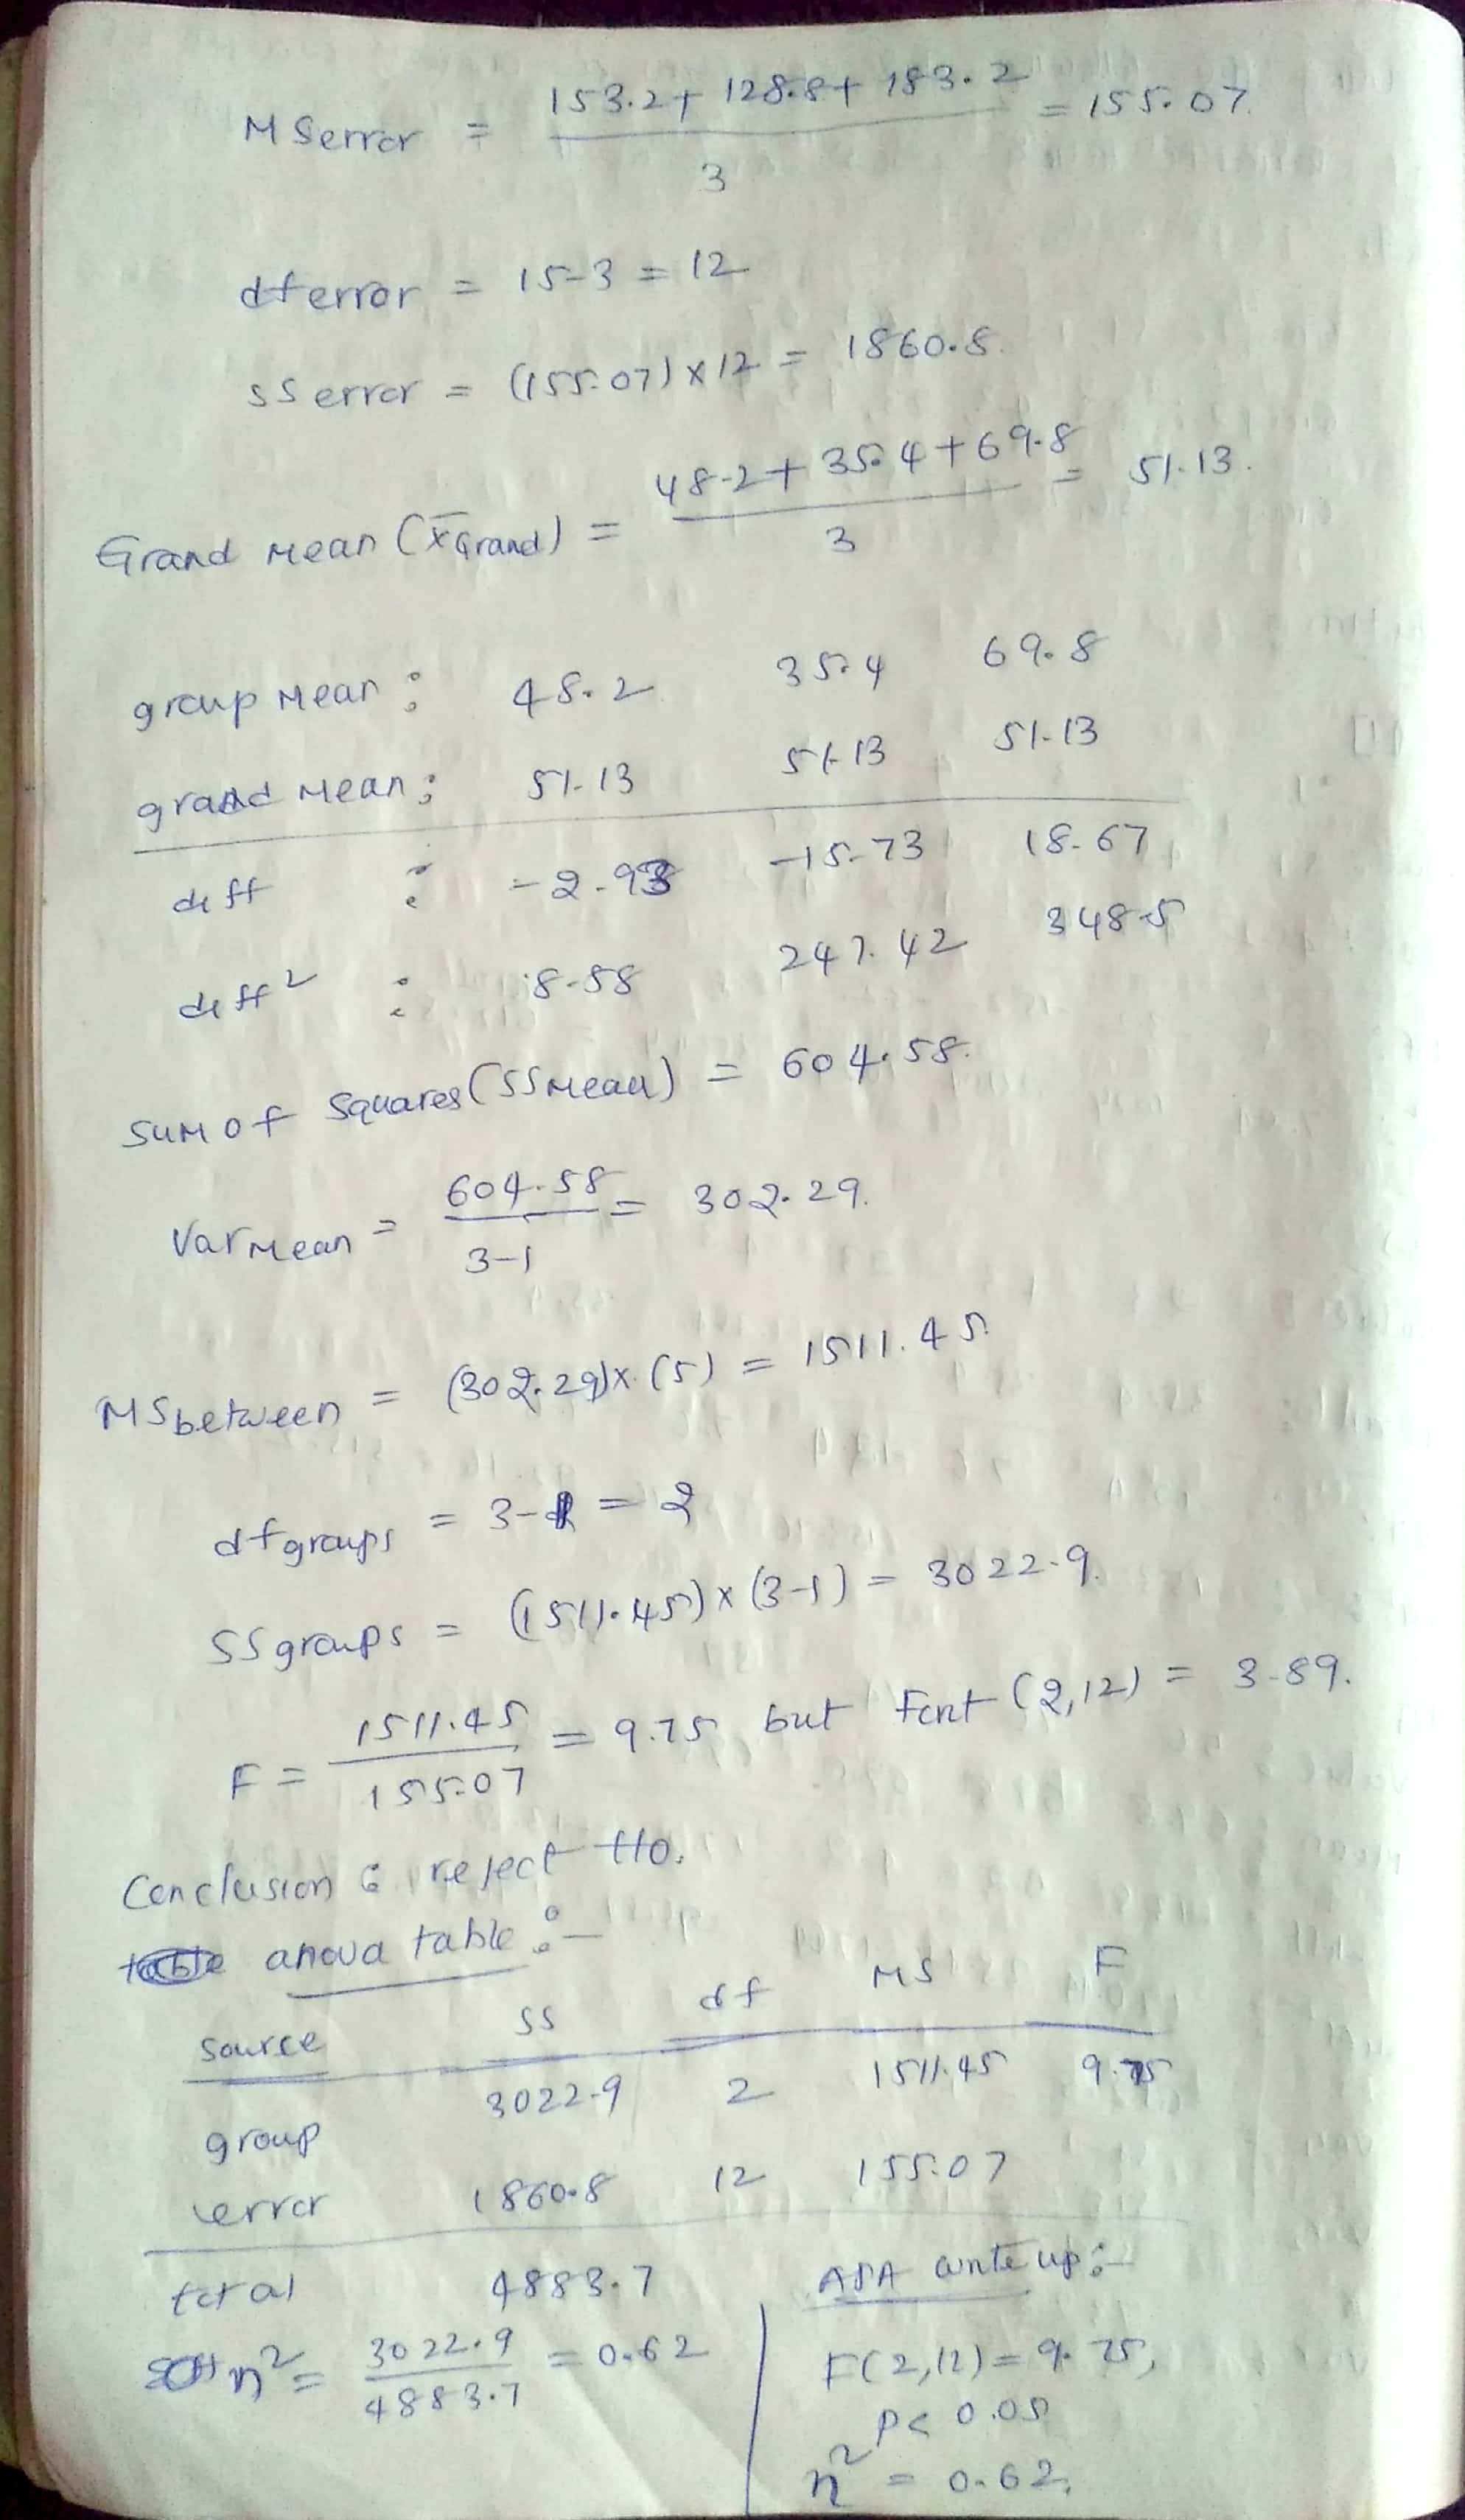 MSerror = 153.2+ 128.8+ 183.2 / 3 = 155.07.
dferror = 15-3 = 12
SSerror = (155.07) x 12 = 1860.8.
Grand Mean (x̄Grand) = 48.2+35.4+69.8 / 3 = 51.13.
group Mean : 48.2 35.4 69.8
grand Mean : 51.13 51.13 51.13
diff : -2.93 -15.73 18.67
diff² : 8.58 247.42 348.5
Sum of Squares (SSMean) = 604.58.
VarMean = 604.58 / 3-1 = 302.29.
MSbetween = (302.29) x (5) = 1511.45.
dfgroups = 3-1 = 2
SSgroups = (1511.45) x (3-1) = 3022.9.
F = 1511.45 / 155.07 = 9.75 but Fcrit (2,12) = 3.89.
Conclusion : reject H0.
anova table :-
Source SS df MS F
group 3022.9 2 1511.45 9.75
error 1860.8 12 155.07
total 4883.7
η² = 3022.9 / 4883.7 = 0.62
APA write up :-
F(2,12) = 9.75,
P< 0.05
η² = 0.62.